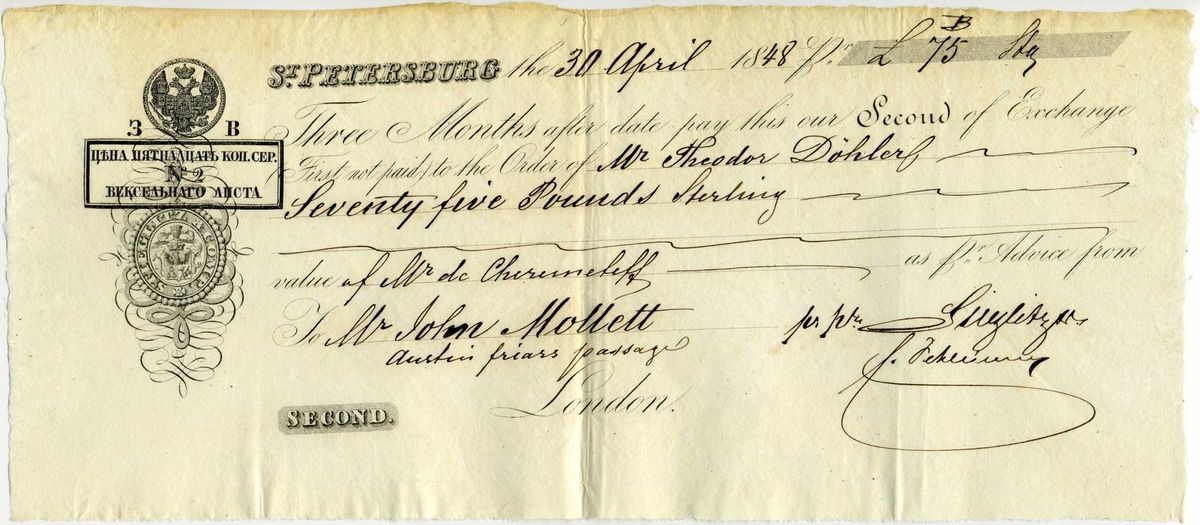 St. PETERSBURG the 30 April 1848 Pr. £ 75 Stg
B
З В
ЦѢНА ПЯТНАДЦАТЬ КОП. СЕР.
№ 2
ВЕКСЕЛЬНАГО ЛИСТА
Three Months after date pay this our Second of Exchange
(First not paid) to the Order of Mr Theodor Döhler
Seventy five Pounds Sterling
value of Mr de Cheremeteff as pr. Advice from
To Mr John Mollett pr pra Stieglitz & Co
Austin friars passage
London.
SECOND.